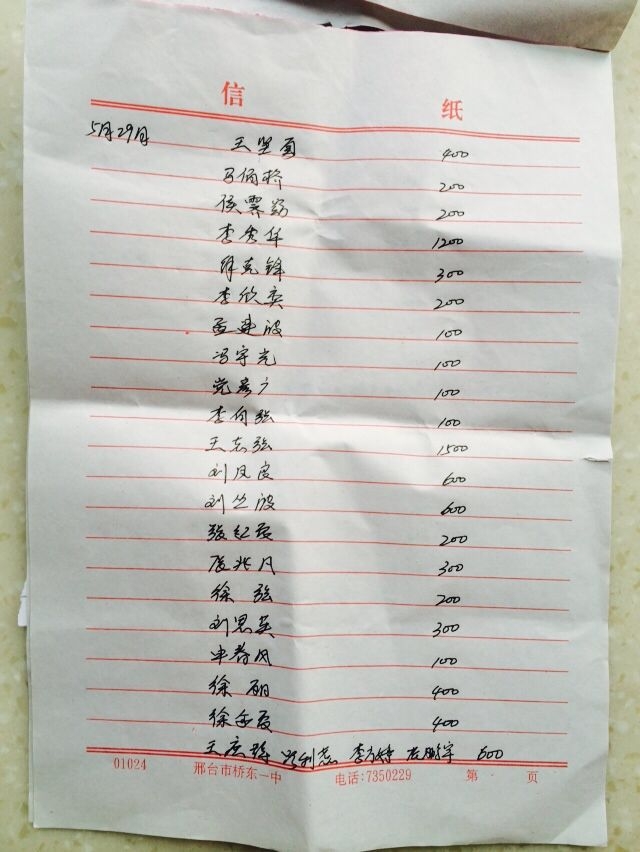 信 纸
5月29日 王坚勇 400
200
侯霁 200
李 华 1200
徐克锋 300
李欣奕 200
孟建波 100
冯宇光 100
党彦广 100
李向强 100
王志强 1500
刘凤良 600
刘丛波 600
张红 200
兆月 300
徐强 200
刘思英 300
春风 100
徐丽 400
徐 霞 400
王庆 李 宇 600
01024 邢台市桥东一中 电话:7350229 第 页